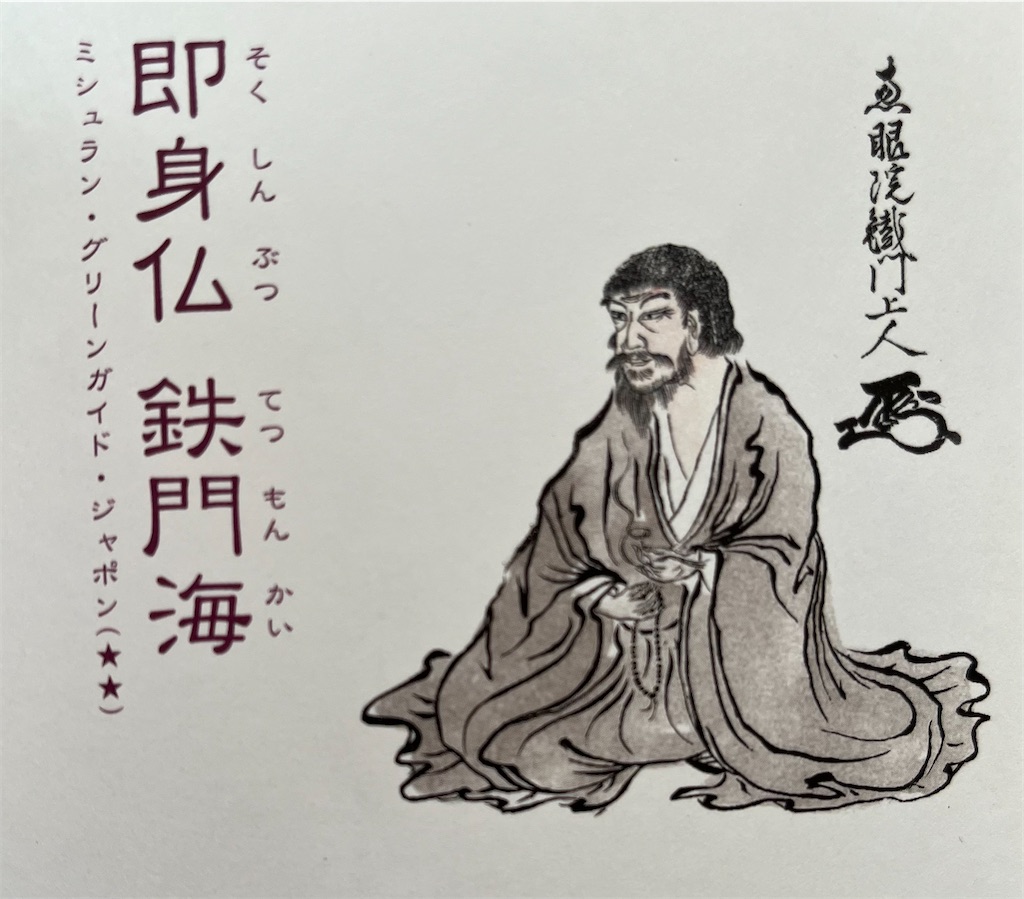 恵眼院鐵門上人
そくしんぶつ てつもんかい
即身仏 鉄門海
ミシュラン・グリーンガイド・ジャポン(★★)